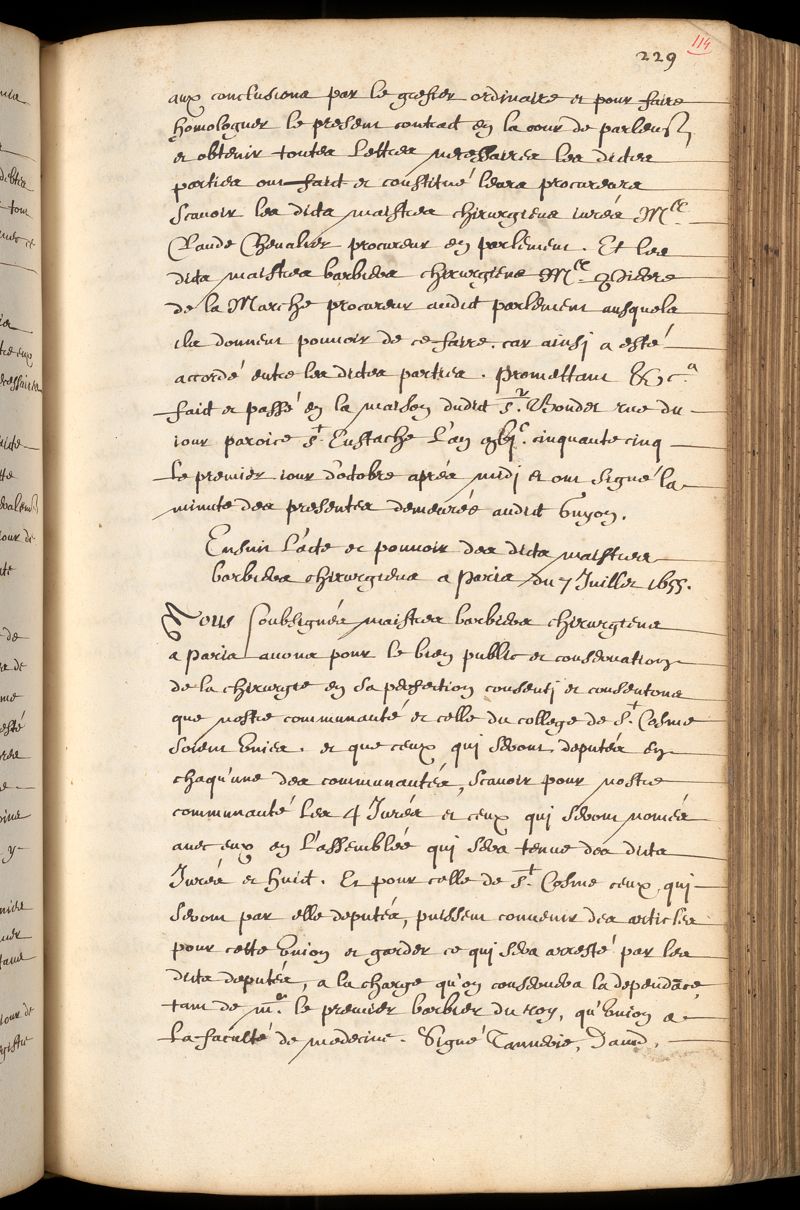 229
114
aux conclusions par le grefier ordinaire et pour faire
homologuer le present contract en la cour de parlem.
et obtenir toutes lettres necessaires les dictes
parties ont faict et constitué leurs procureurs
Scavoir les dits maistres chirurgiens iurés M.re
Claude Chevalier procureur en parlement. Et les
dits maistres barbiers chirurgiens M.re Pierre
de la Marche procureur audit parlement ausquels
ils donnent pouvoir de ce faire. car ainsj a esté
accordé entre les dictes parties. Promettant &c.a
faict et passé en la maison dudit s.r Boudet rue du
iour paroice s.t Eustache l'an cinquante cinq
le premier iour d'octobre aprés midj et ont signé la
minute des presentes demeurée audit Guyon.
Ensuit l'acte et pouvoir des dits maistres
barbiers chirurgiens a Paris du 7 Juillet 1655.
Nous soubsignés maistres barbiers chirurgiens
a Paris avons pour le bien public et conservation
de la chirurgie en sa perfection consentj et consentons
que nostre communauté et celle du college de s.t Cosme
soient Unies. et que ceux qui seront deputés en
chaqu'une des communautés, scavoir pour nostre
communauté les 4 Jurés et ceux qui seront només
avec eux en l'assemblée qui sera tenue des dits
Jurés et huict. Et pour celle de s.t Cosme ceux qui
seront par elle deputés, puissent convenir des articles
pour cette Union et garder ce qui sera arresté par les
dits deputés, a la charge qu'on conservera la dependāce
tant de m.r le premier barbier du roy, qu'Union a
la faculté de medecine. Signé David,